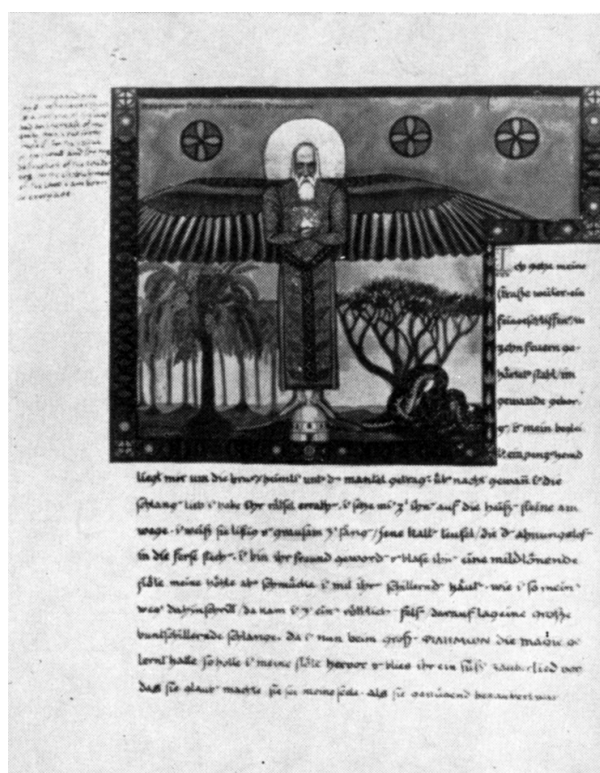 Ich gehe meine
straße weiter. ein
feingeschliffen' in
zehn feuern ge-
härtet' stahl/ im
gewande gebor-
g'/ i' mein beglei
t'. ein panzerhemd
liegt mir um die brust/ heimli' unt' d' mantel getrag'. üb' nacht gewan i' die
schlang' lieb/ i' habe ihr räthsel errath'. i' setze mi' z' ihn' auf die heiß' steine am
wege. i' weiß sie listig u' grausam z' fang'/ jene kalt' teufel/ die d' ahnungslos'
in die ferse stech'. i' bin ihr freund geword' u' blase ihn' eine mildtönende
flöte. meine höhle ab' schmücke i' mit ihr' schillernd' häut'. wie i' so mein'
weg dahinschritt/ da kam i' z' ein' röthlich' fels/ darauf lag eine große
buntschillernde schlange. da i' nun beim groß' ΦΙΛΗΜΩΝ die magie ge
lernt hatte/ so holte i' meine flöte hervor u' blies ihr ein süß' zauberlied vor
das sie glaub' machte/ sie sei meine seele. als sie genügend bezaubert war